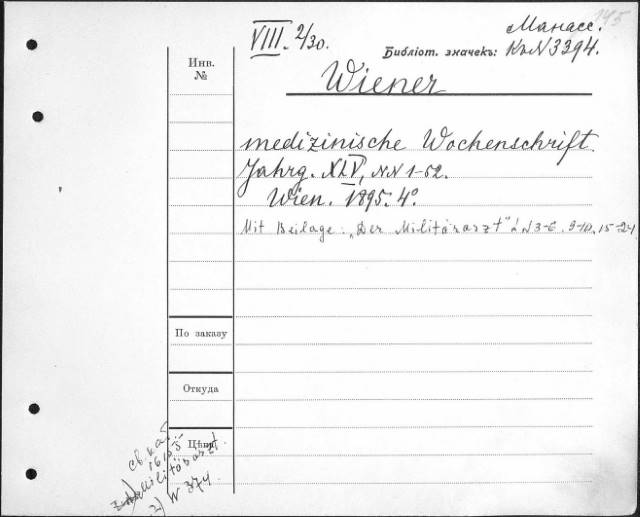 145
VIII. 2/30.
Манасс.
Бібліот. значекъ: КъN3394.
Инв.
№
Wiener
medizinische Wochenschrift.
Jahrg. XLV, NN 1-52.
Wien. 1895. 4°
Mit Beilage: „Der Militärarzt" à N 3-6, 9-10, 15-24
По заказу
Откуда
Цѣна
св. кат.
Militärarzt
2) N 374